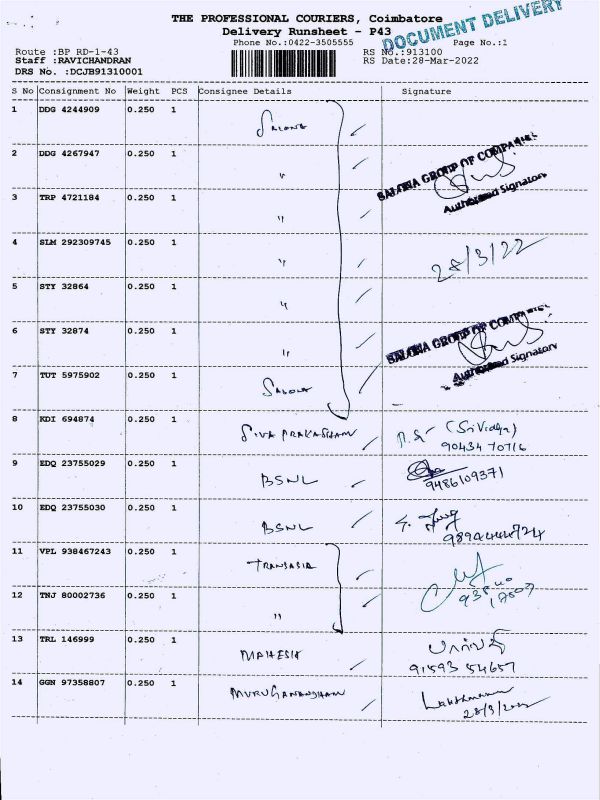 THE PROFESSIONAL COURIERS, Coimbatore
DOCUMENT DELIVERY
Delivery Runsheet - P43
Phone No.:0422-3505555
Page No.:1
Route :BP RD-1-43
RS No.:913100
Staff :RAVICHANDRAN
RS Date:28-Mar-2022
DRS No. :DCJB91310001
S No Consignment No Weight PCS Consignee Details Signature
1 DDG 4244909 0.250 1
2 DDG 4267947 0.250 1 "
SALONA GROUP OF COMPANIES
Authorised Signatory
3 TRP 4721184 0.250 1 "
4 SLM 292309745 0.250 1 " 28/3/22
5 STY 32864 0.250 1 "
6 STY 32874 0.250 1 "
SALONA GROUP OF COMPANIES
Authorised Signatory
7 TUT 5975902 0.250 1 SALONA
8 KDI 694874 0.250 1 SIVA PRAKASHAM (SriVidya)
90434 70716
9 EDQ 23755029 0.250 1 BSNL
9486109371
10 EDQ 23755030 0.250 1 BSNL
11 VPL 938467243 0.250 1 TRANSASIA
12 TNJ 80002736 0.250 1 "
13 TRL 146999 0.250 1 MAHESH
91593 54657
14 GGN 97358807 0.250 1 MURUGANANDHAM
28/3/2022